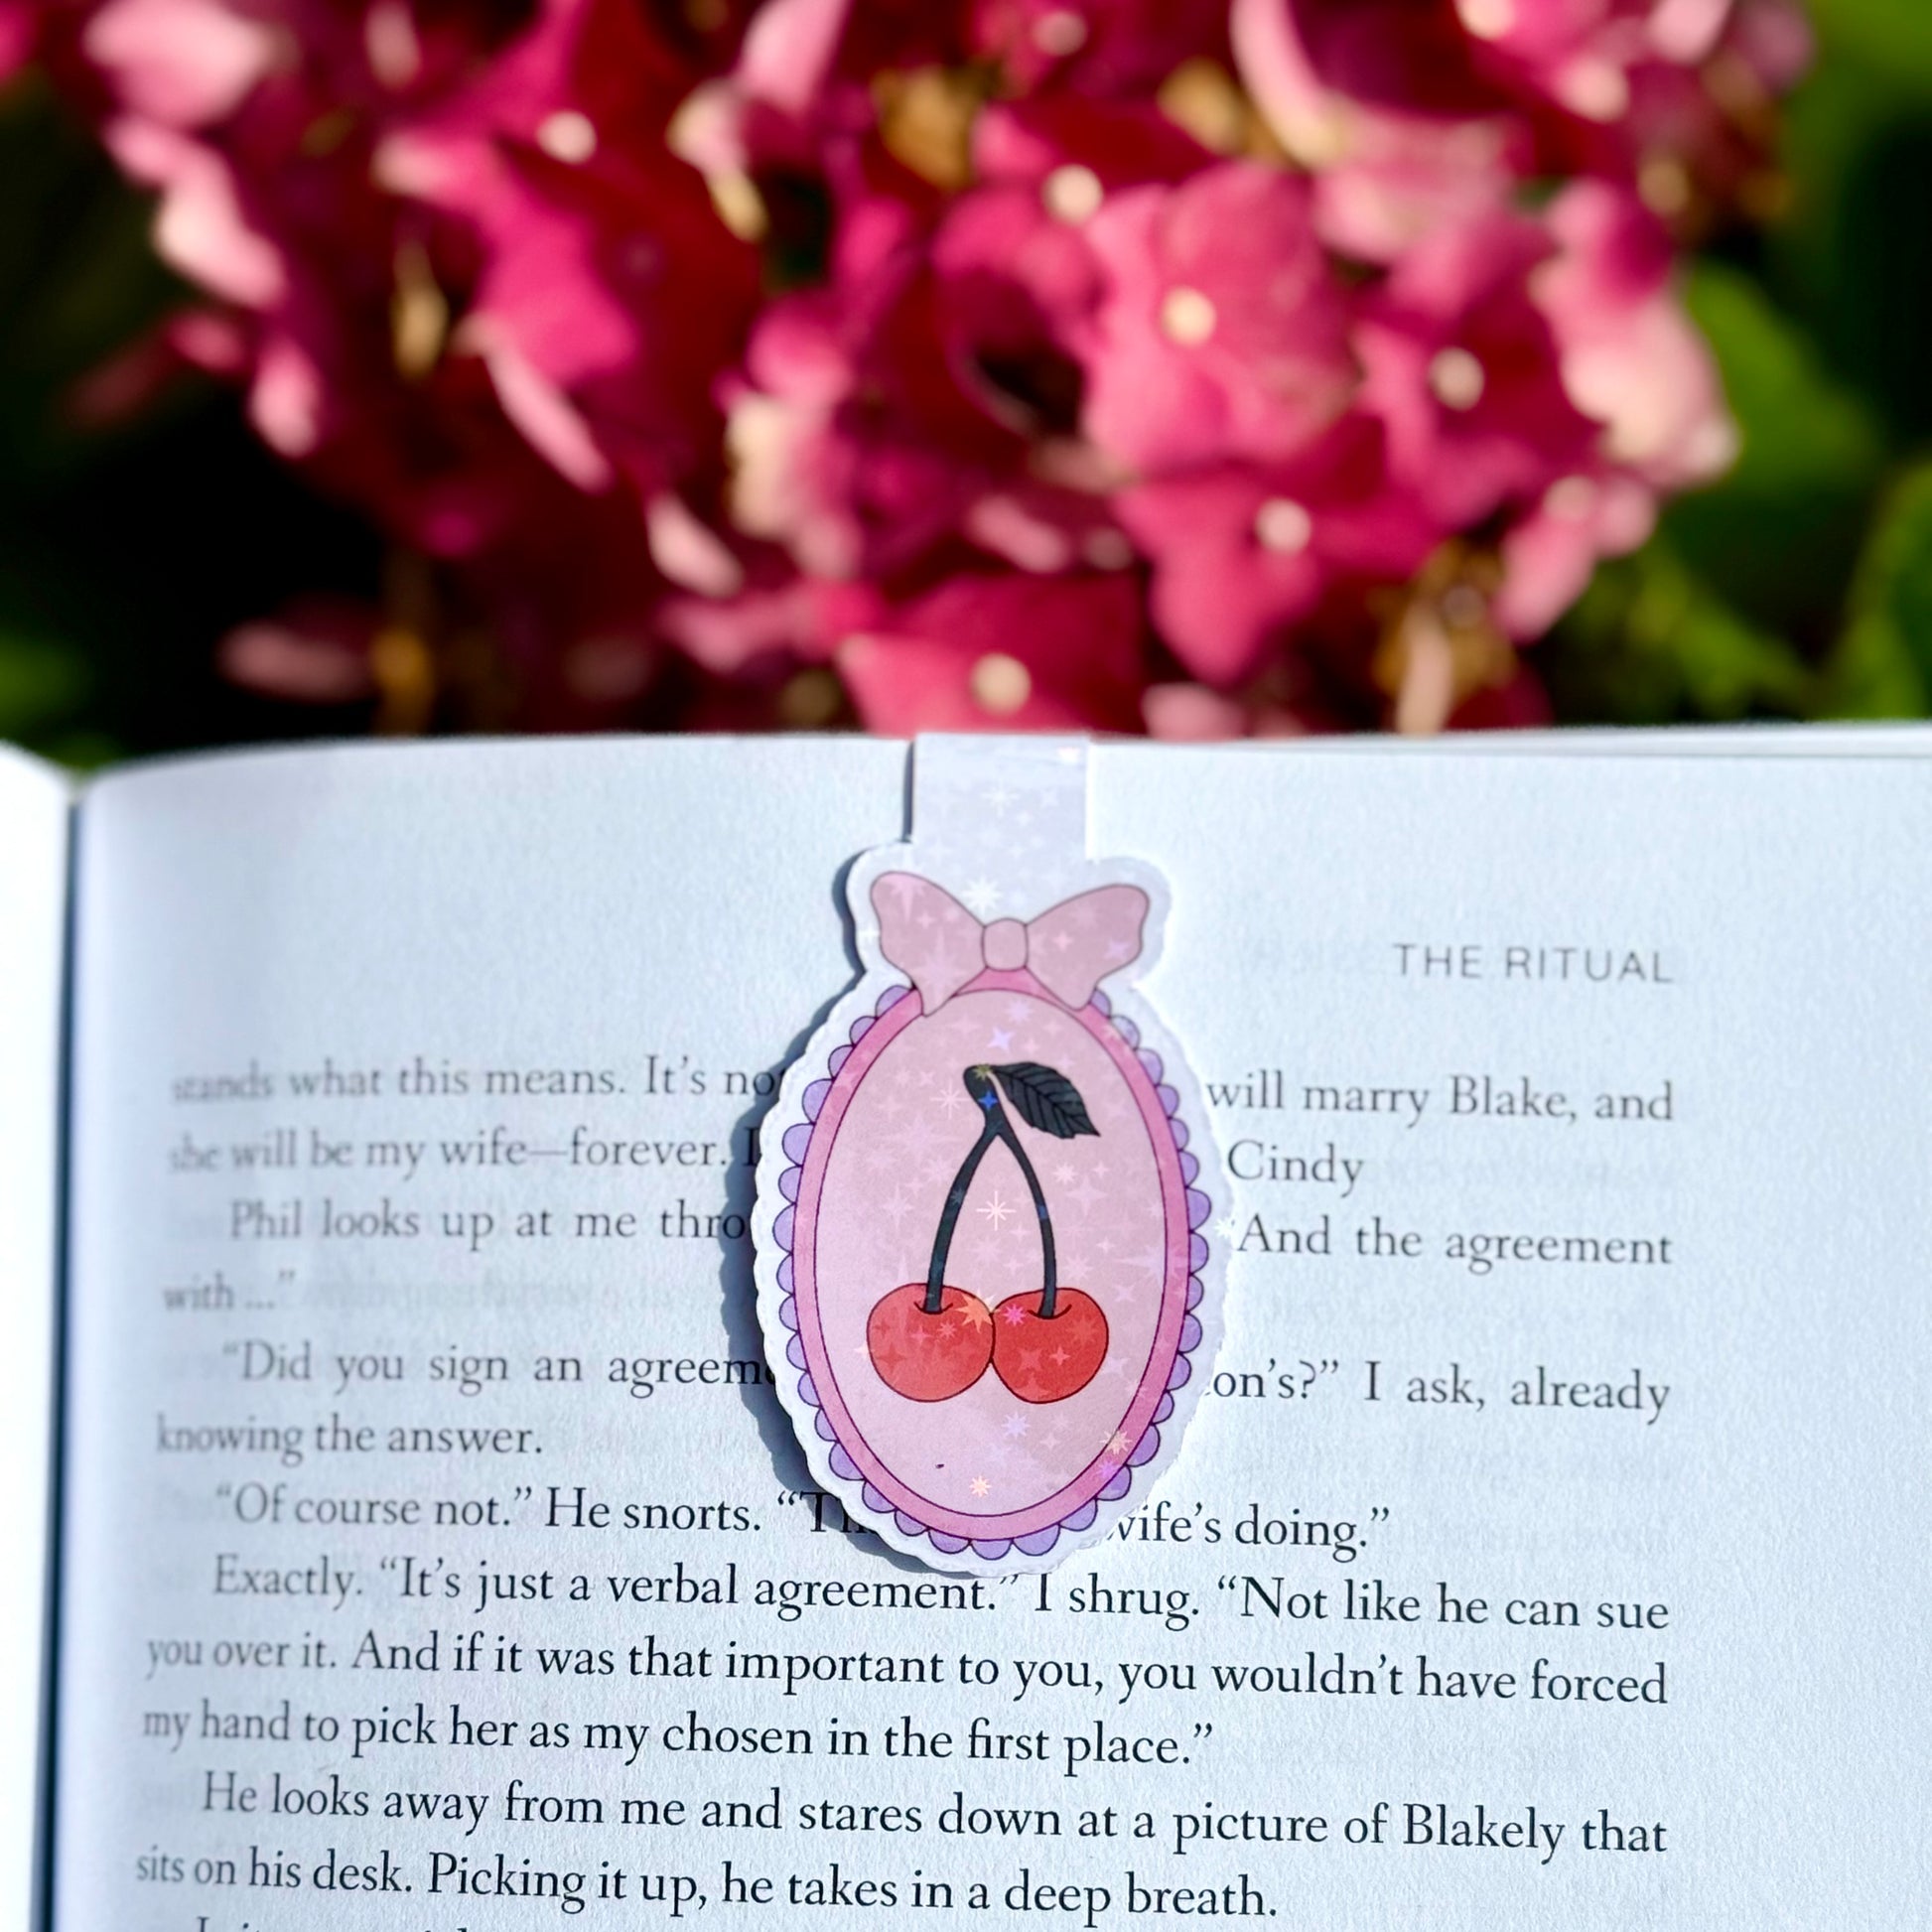 THE RITUAL
stands what this means. It's no will marry Blake, and
she will be my wife—forever. Cindy
Phil looks up at me thro “And the agreement
with ...”
“Did you sign an agreem on's?” I ask, already
knowing the answer.
“Of course not.” He snorts. “Th wife's doing.”
Exactly. “It's just a verbal agreement.” I shrug. “Not like he can sue
you over it. And if it was that important to you, you wouldn't have forced
my hand to pick her as my chosen in the first place.”
He looks away from me and stares down at a picture of Blakely that
sits on his desk. Picking it up, he takes in a deep breath.